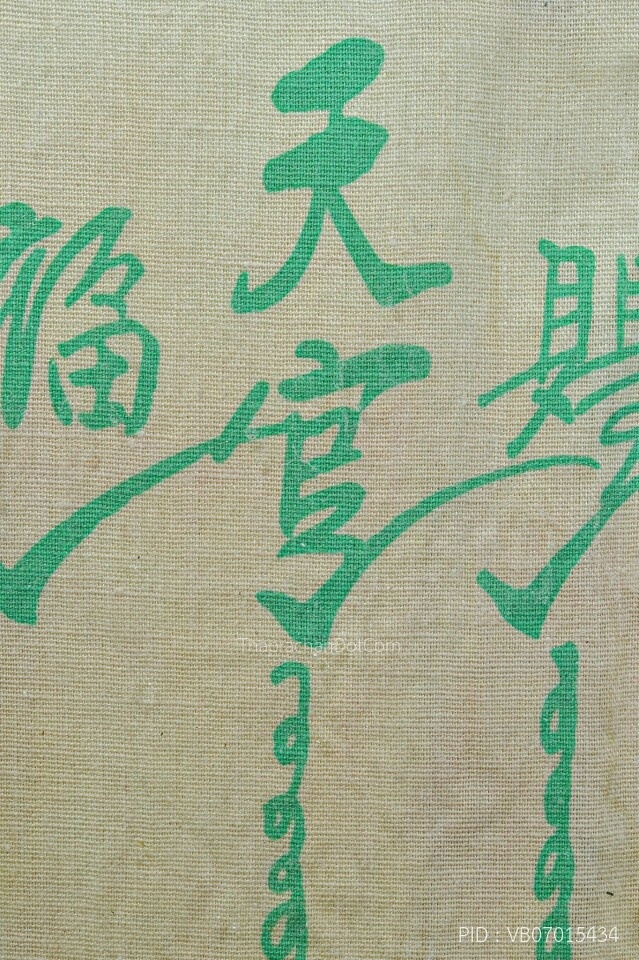 天官
賜
福
ThaprachanDotCom
PID : VB07015434